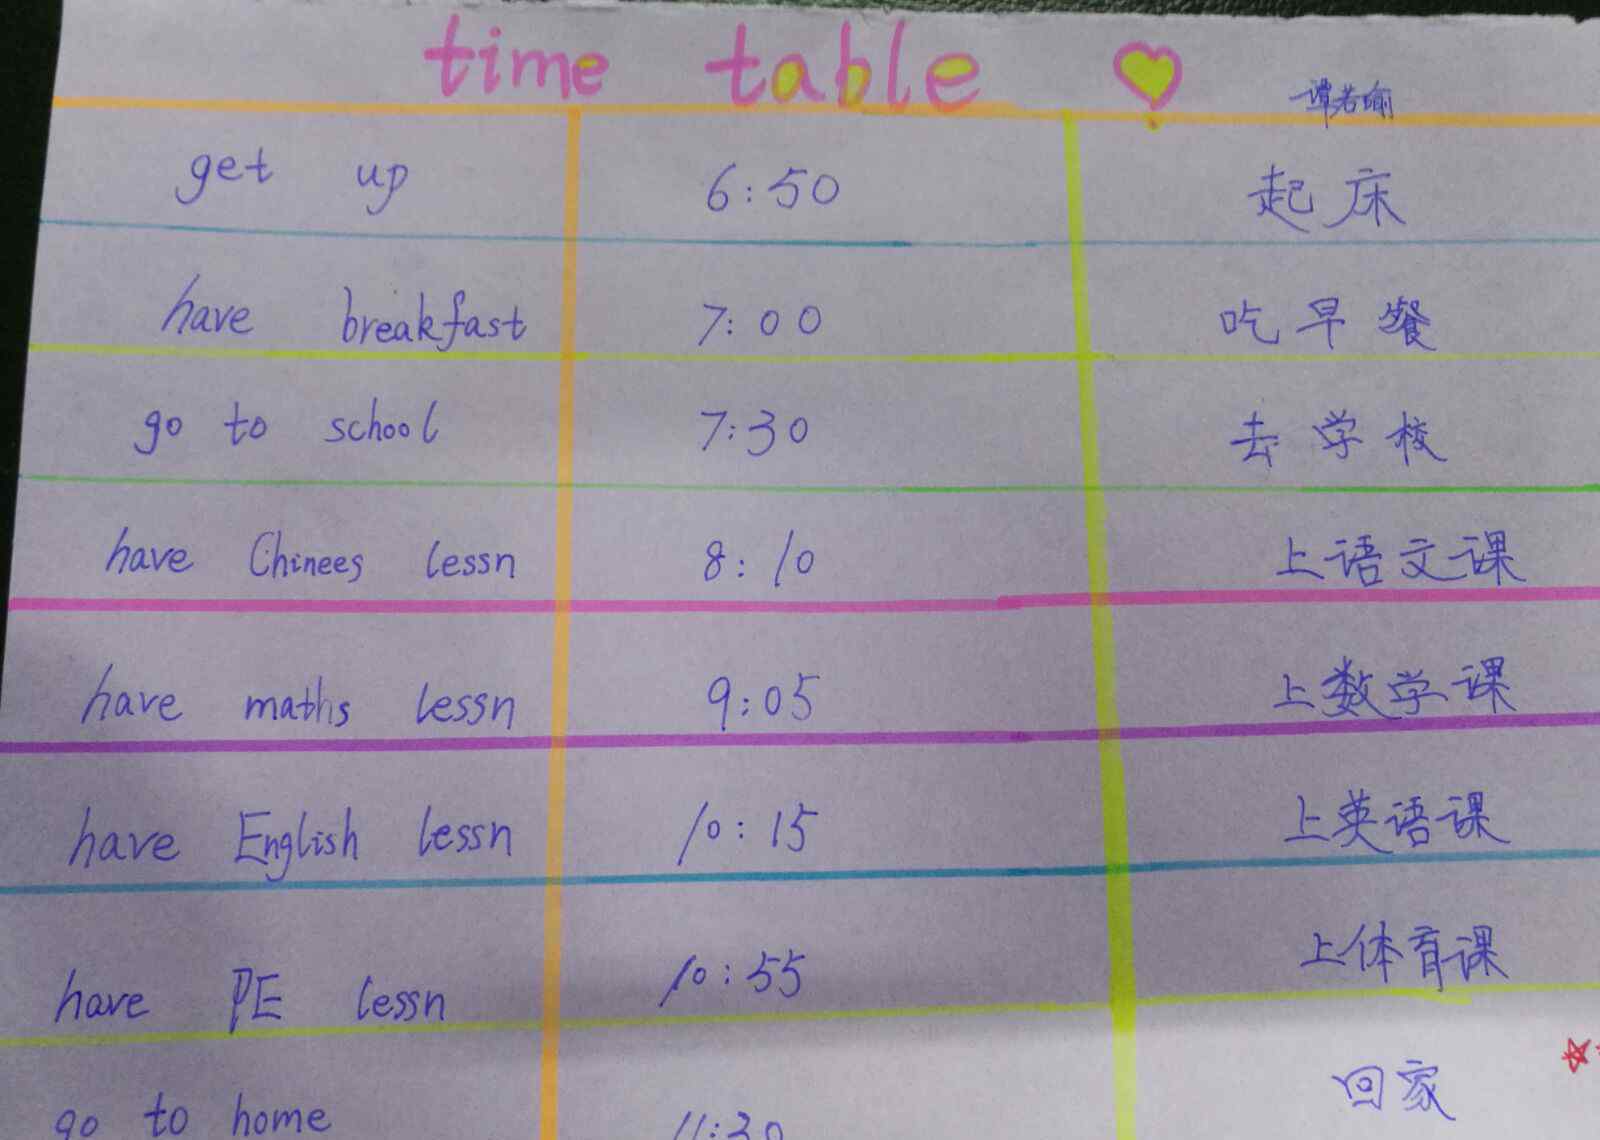 time table
谭若瑜
get up 6:50 起床
have breakfast 7:00 吃早餐
go to school 7:30 去学校
have Chinees lessn 8:10 上语文课
have maths lessn 9:05 上数学课
have English lessn 10:15 上英语课
have PE lessn 10:55 上体育课
go to home 11:30 回家